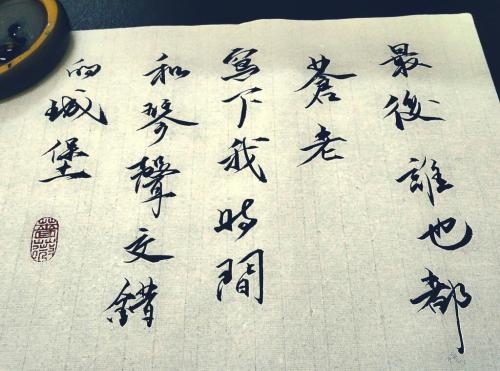 最後誰也都
蒼老
寫下我時間
和琴聲交錯
的城堡